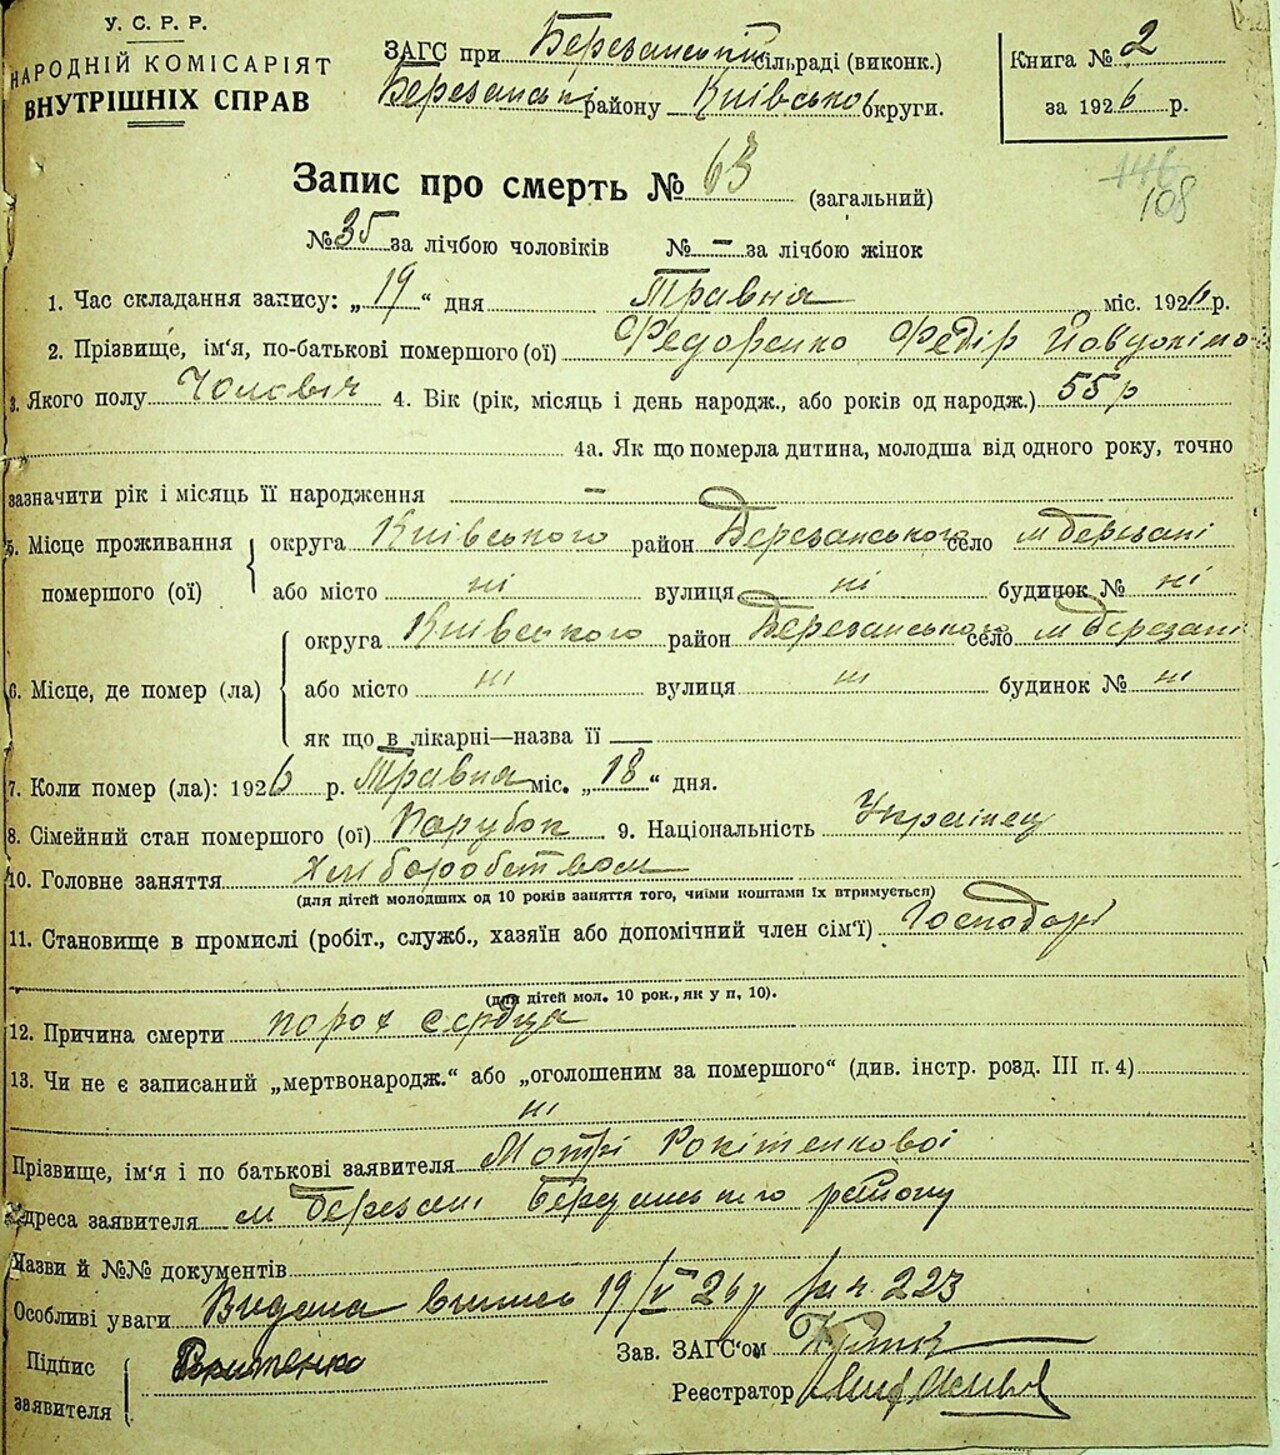 У. С. Р. Р.
НАРОДНІЙ КОМІСАРІЯТ
ВНУТРІШНІХ СПРАВ
ЗАГС при Березанській сільраді (виконк.)
Березанські району Київської округи.
Книга № 2
за 1926 р.
Запис про смерть № 63 (загальний)
146
108
№ 35 за лічбою чоловіків № – за лічбою жінок
1. Час складання запису: „19“ дня Травня міс. 1926 р.
2. Прізвище, ім'я, по-батькові помершого (ої) Федоренко Федір Йовдокімо
3. Якого полу Чоловіч 4. Вік (рік, місяць і день народж., або років од народж.) 55 р
4а. Як що померла дитина, молодша від одного року, точно
зазначити рік і місяць її народження –
5. Місце проживання помершого (ої) округа Київського район Березанського село м Березані
або місто ні вулиця ні будинок № ні
6. Місце, де помер (ла) округа Київського район Березанського село м Березані
або місто ні вулиця ні будинок № ні
як що в лікарні—назва її —
7. Коли помер (ла): 1926 р. Травня міс. „18“ дня.
8. Сімейний стан помершого (ої) Парубок 9. Національність Украінец
10. Головне заняття Хліборобством
(для дітей молодших од 10 років заняття того, чиїми коштами їх втримується)
11. Становище в промислі (робіт., служб., хазяїн або допомічний член сім'ї) Господарі
(для дітей мол. 10 рок., як у п, 10).
12. Причина смерти порок сердца
13. Чи не є записаний „мертвонародж.“ або „оголошеним за помершого“ (див. інстр. розд. III п. 4)
ні
Прізвище, ім'я і по батькові заявителя Мотрі Рокітенкової
Адреса заявителя м Березані Березанського району
Назви й №№ документів
Особливі уваги Видана 19/V 26 р 223
Підпис заявителя Рокитенко
Зав. ЗАГС'ом
Реєстратор